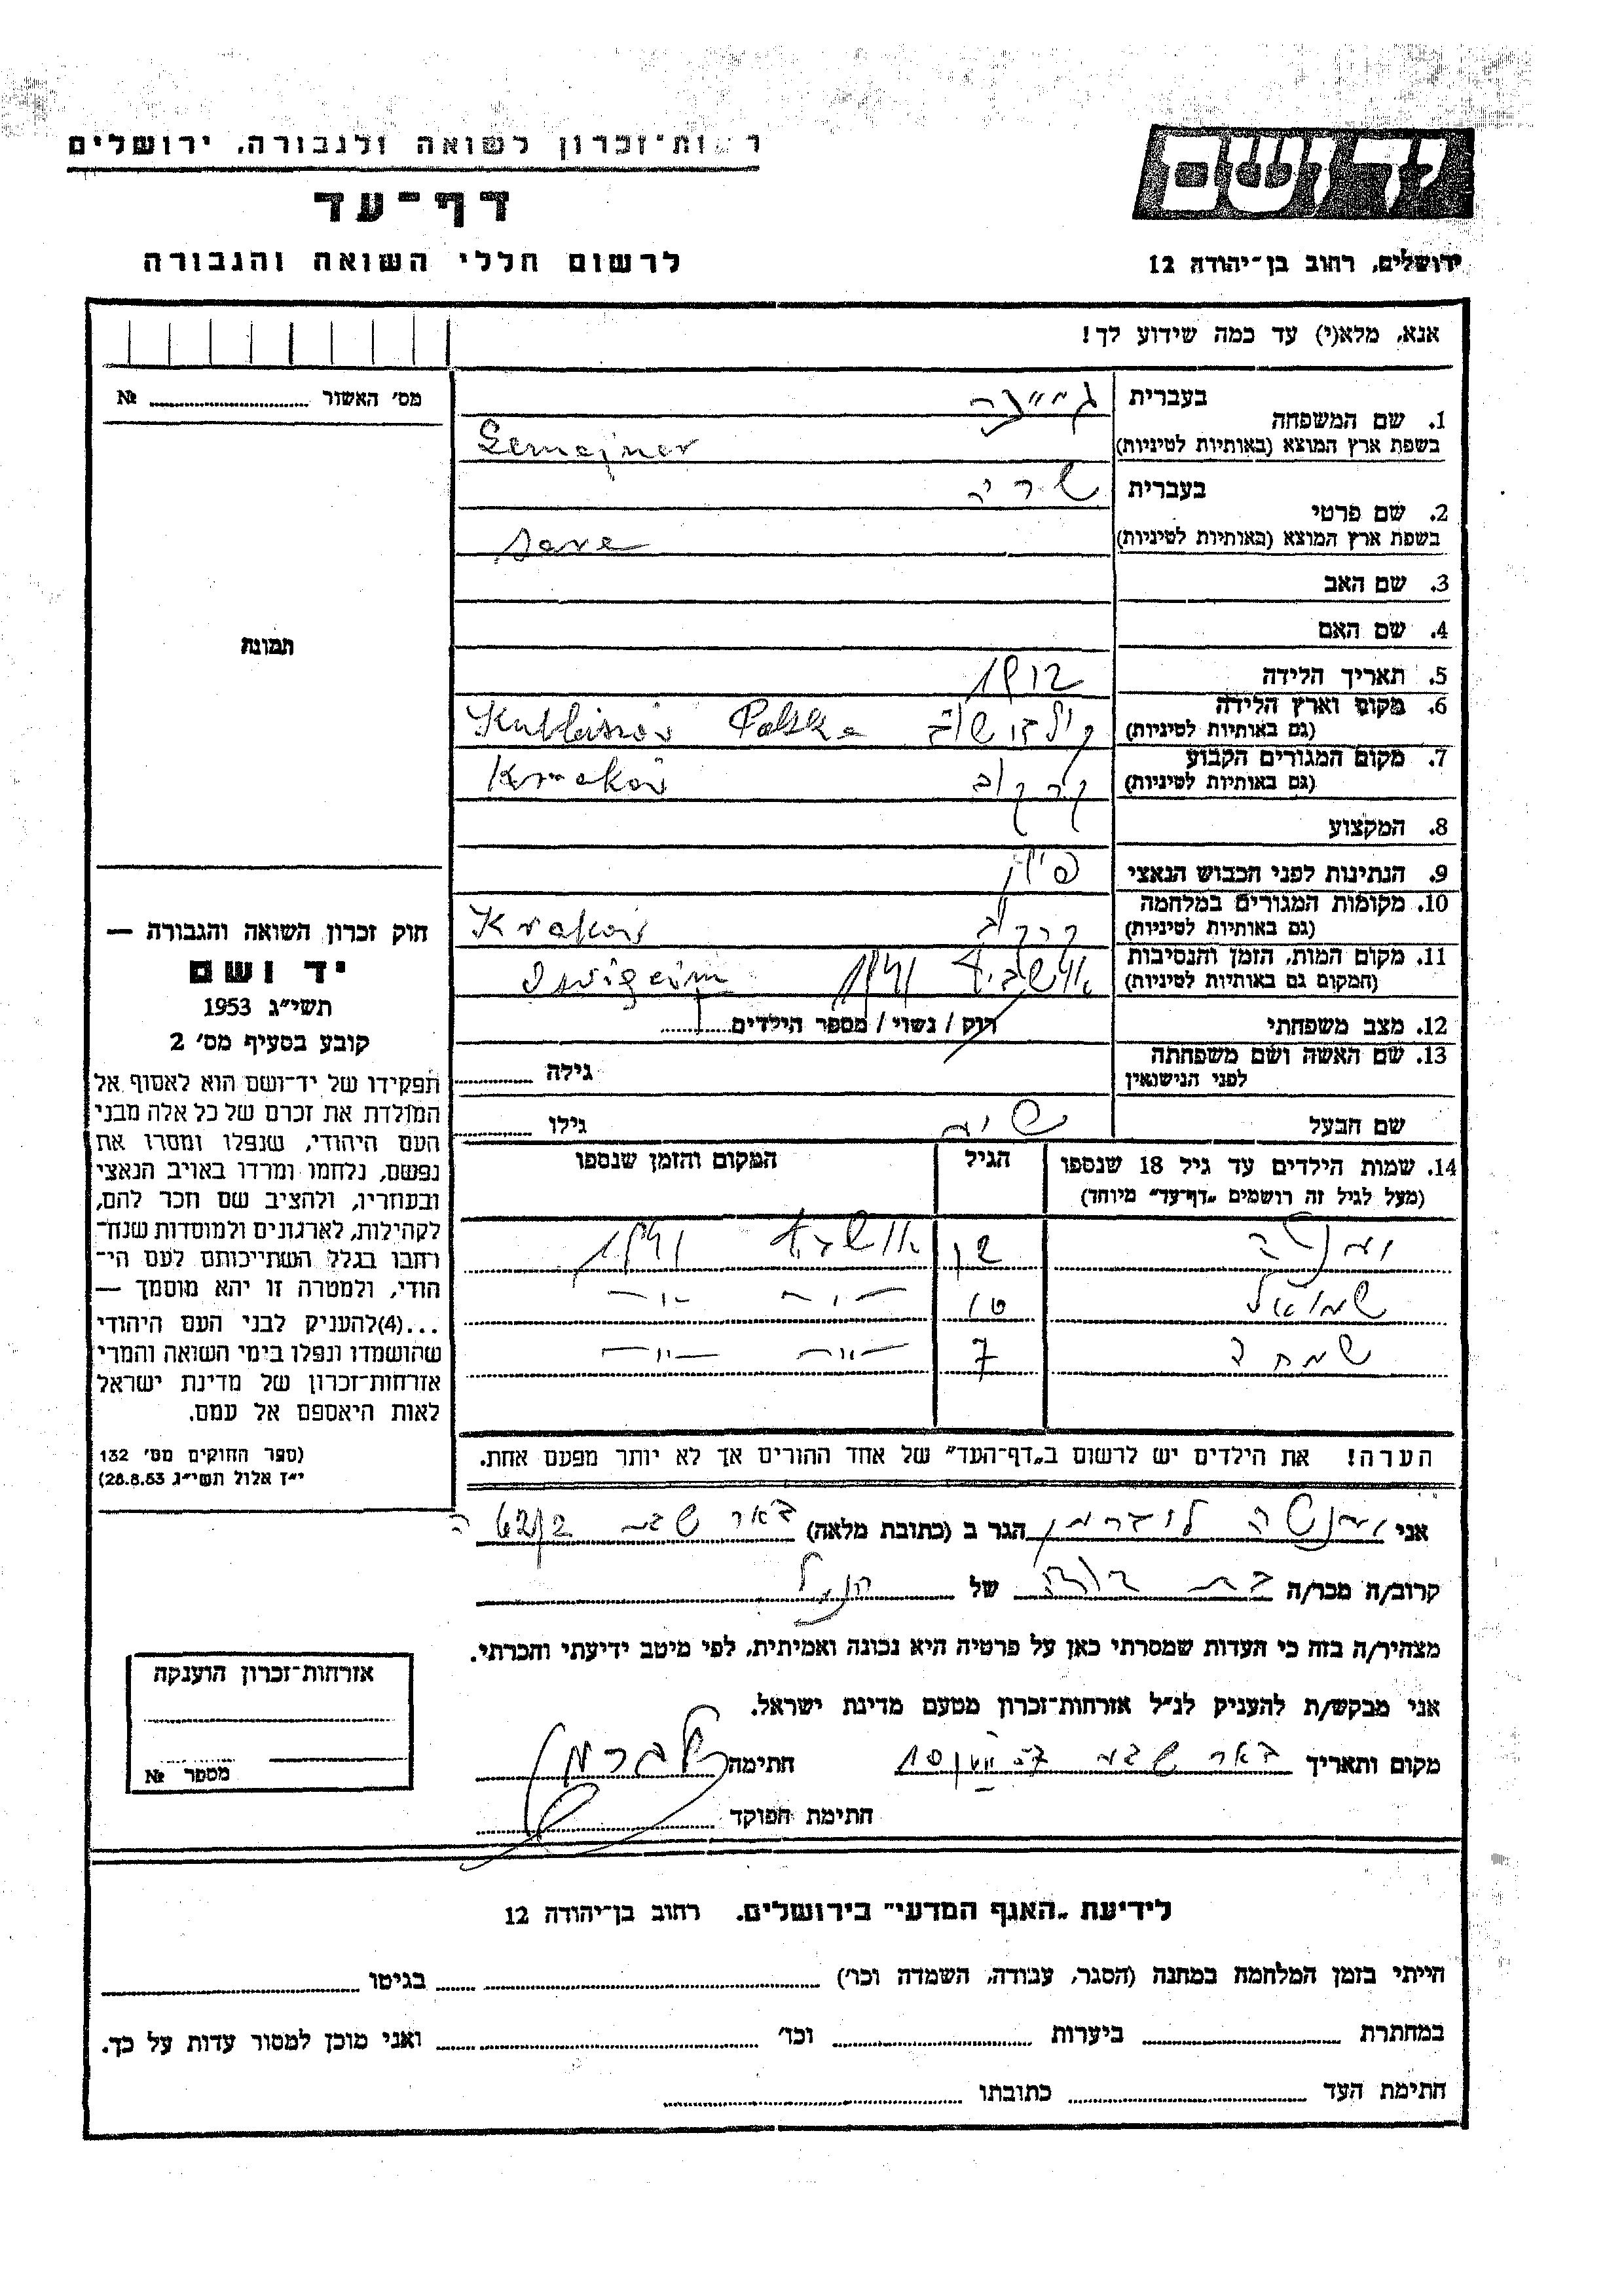 רשות־זכרון לשואה ולגבורה, ירושלים
דף־עד
לרשום חללי השואה והגבורה
יד ושם
ירושלים, רחוב בן־יהודה 12
אנא, מלא(י) עד כמה שידוע לך!
מס׳ האשור ........ №
תמונה
1. שם המשפחה
בעברית
בשפת ארץ המוצא (באותיות לטיניות) Gemajner
2. שם פרטי
בעברית שרה
בשפת ארץ המוצא (באותיות לטיניות) Sara
3. שם האב
4. שם האם
5. תאריך הלידה 1912
6. מקום וארץ הלידה
(גם באותיות לטיניות) Polska
7. מקום המגורים הקבוע
(גם באותיות לטיניות) קרקוב Krakov
8. המקצוע
9. הנתינות לפני הכבוש הנאצי פולין
10. מקומות המגורים במלחמה
(גם באותיות לטיניות) קרקוב Krakov
11. מקום המות, הזמן והנסיבות
(המקום גם באותיות לטיניות) 1941
12. מצב משפחתי רוק / נשוי / מספר הילדים
13. שם האשה ושם משפחתה
לפני הנישואין
גילה
שם הבעל
גילו
14. שמות הילדים עד גיל 18 שנספו
(מעל לגיל זה רושמים „דף־עד״ מיוחד)
הגיל
המקום והזמן שנספו
1941
שמואל
שמחה 7
הערה! את הילדים יש לרשום ב„דף־העד״ של אחד ההורים אך לא יותר מפעם אחת.
חוק זכרון השואה והגבורה —
יד ושם
תשי״ג 1953
קובע בסעיף מס׳ 2
תפקידו של יד־ושם הוא לאסוף אל
המולדת את זכרם של כל אלה מבני
העם היהודי, שנפלו ומסרו את
נפשם, נלחמו ומרדו באויב הנאצי
ובעוזריו, ולהציב שם וזכר להם,
לקהילות, לארגונים ולמוסדות שנח־
רבו בגלל השתייכותם לעם הי־
הודי, ולמטרה זו יהא מוסמך —
...(4) להעניק לבני העם היהודי
שהושמדו ונפלו בימי השואה והמרי
אזרחות־זכרון של מדינת ישראל
לאות היאספם אל עמם.
(ספר החוקים מס׳ 132
י״ז אלול תשי״ג 28.8.53)
אני הגר ב (כתובת מלאה) באר שבע
קרוב/ה מכר/ה של הנ״ל
מצהיר/ה בזה כי העדות שמסרתי כאן על פרטיה היא נכונה ואמיתית, לפי מיטב ידיעתי והכרתי.
אני מבקש/ת להעניק לנ״ל אזרחות־זכרון מטעם מדינת ישראל.
מקום ותאריך באר שבע חתימה
חתימת הפוקד
אזרחות־זכרון הוענקה
מספר №
לידיעת „האגף המדעי״ בירושלים. רחוב בן־יהודה 12
הייתי בזמן המלחמה במחנה (הסגר, עבודה, השמדה וכו׳) בגיטו
במחתרת ביערות וכו׳ ואני מוכן למסור עדות על כך.
חתימת העד כתובתו